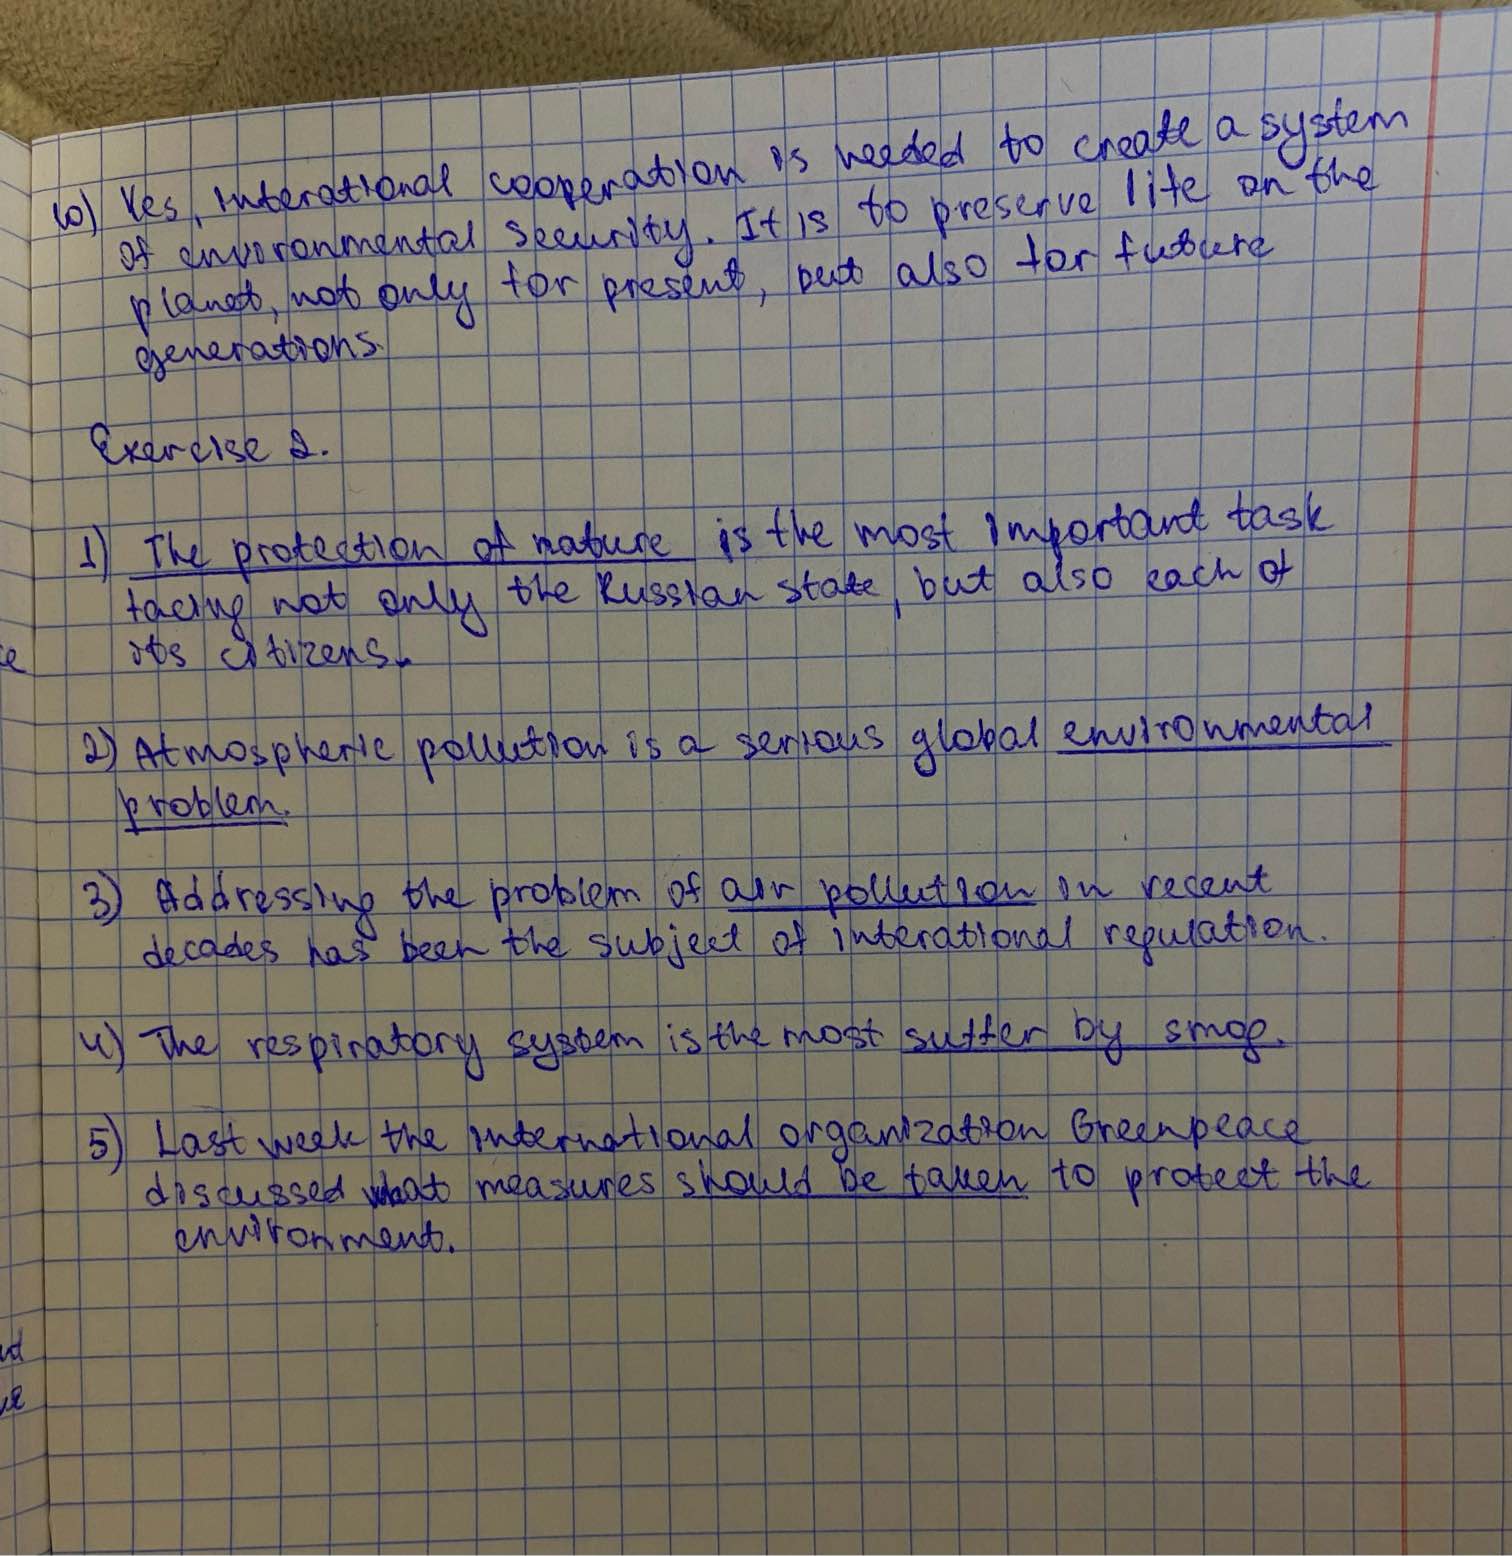 10) Yes, interational cooperation is needed to create a system
of environmental security. It is to preserve life on the
planet, not only for present, but also for future
generations.
Exercise 2.
1) The protection of nature is the most important task
facing not only the Russian state, but also each of
its citizens.
2) Atmospheric pollution is a serious global environmental
problem.
3) Addressing the problem of air pollution in recent
decades has been the subject of interational regulation.
4) The respiratory system is the most suffer by smog.
5) Last week the international organization Greenpeace
discussed what measures should be taken to protect the
environment.